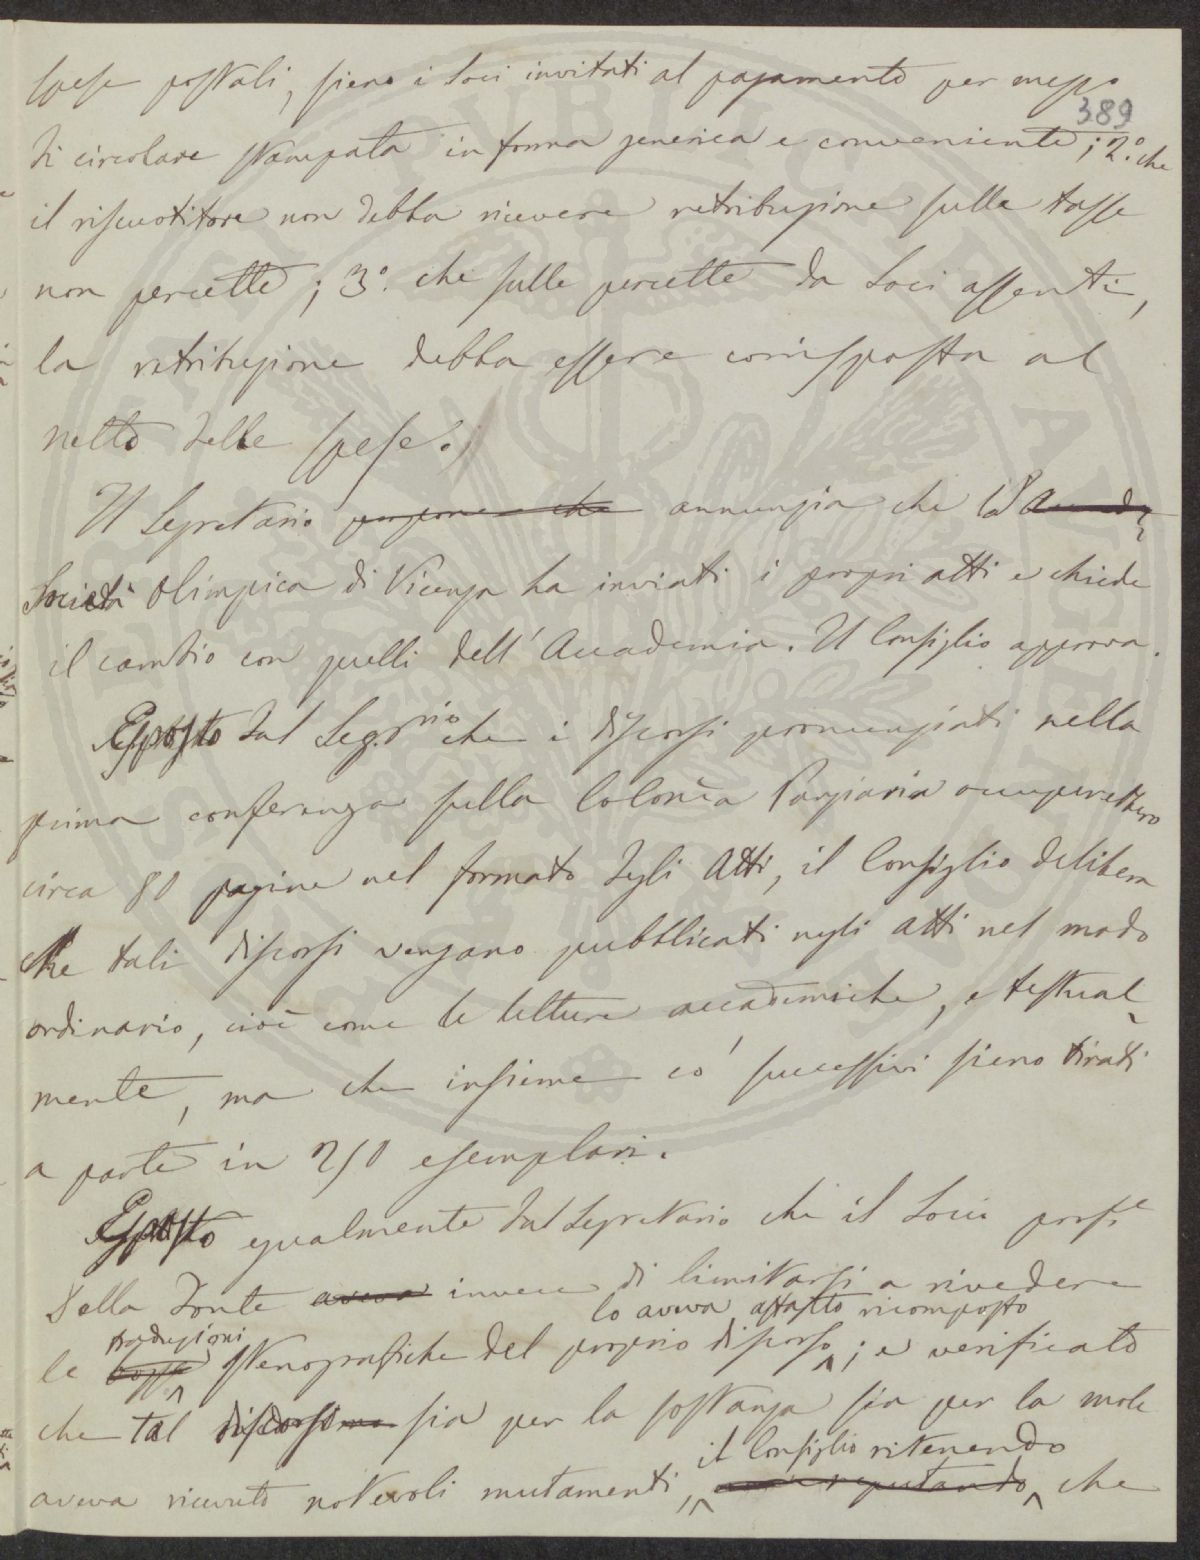 spese postali, sieno i Soci invitati al pagamento per mezzo
389
di circolare stampata in forma generica e conveniente; 2.° che
il riscuotitore non debba ricevere retribuzione sulle tasse
non percette; 3.° che sulle percette da Soci assenti,
la retribuzione debba essere corrisposta al
netto delle spese.
Il Segretario propone che annunzia che la
Società Olimpica di Vicenza ha inviati i propri atti e chiede
il cambio con quelli dell'Accademia. Il Consiglio approva.
Esposto dal Seg.rio che i discorsi pronunziati nella
prima conferenza sulla Colonìa Parziaria occuperebbero
circa 80 pagine nel formato degli Atti, il Consiglio delibera
che tali discorsi vengano pubblicati negli atti nel modo
ordinario, cioè come le letture accademiche, e testual-
mente, ma che insieme co' successivi sieno tirati
a parte in 250 esemplari.
Esposto egualmente dal Segretario che il Socio profe
Della Fonte aveva invece di limitarsi a rivedere
lo aveva affatto ricomposto
traduzioni
le stenografiche del proprio discorso; e verificato
che tal discorso sia per la sostanza sia per la mole
il Consiglio ritenendo
aveva ricevuto notevoli mutamenti, reputando che